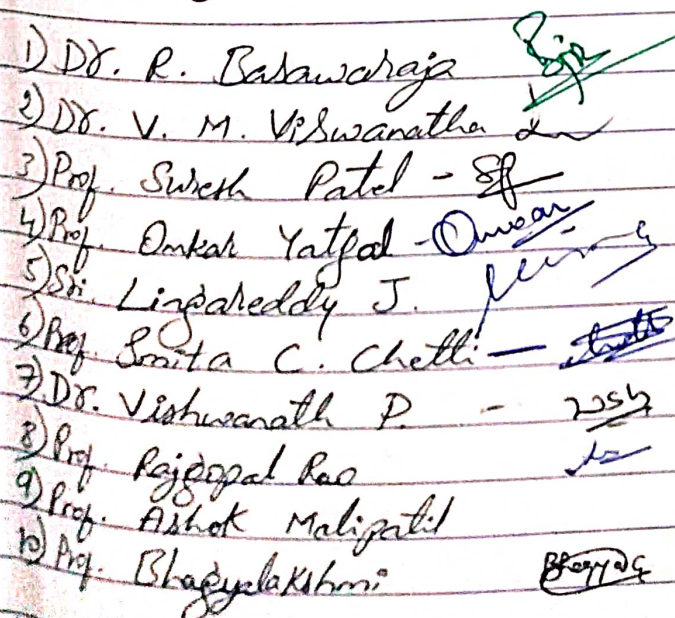 1) Dr. R. Basawaraja
2) Dr. V. M. Viswanatha
3) Prof. Suresh Patel -
4) Prof. Omkar Yatgal - Omkar
5) Sri. Lingareddy J.
6) Prof. Smita C. Chetti -
7) Dr. Vishwanath P. -
8) Prof. Rajgopal Rao
9) Prof. Ashok Malipatil
10) Prof. Bhagyalakshmi